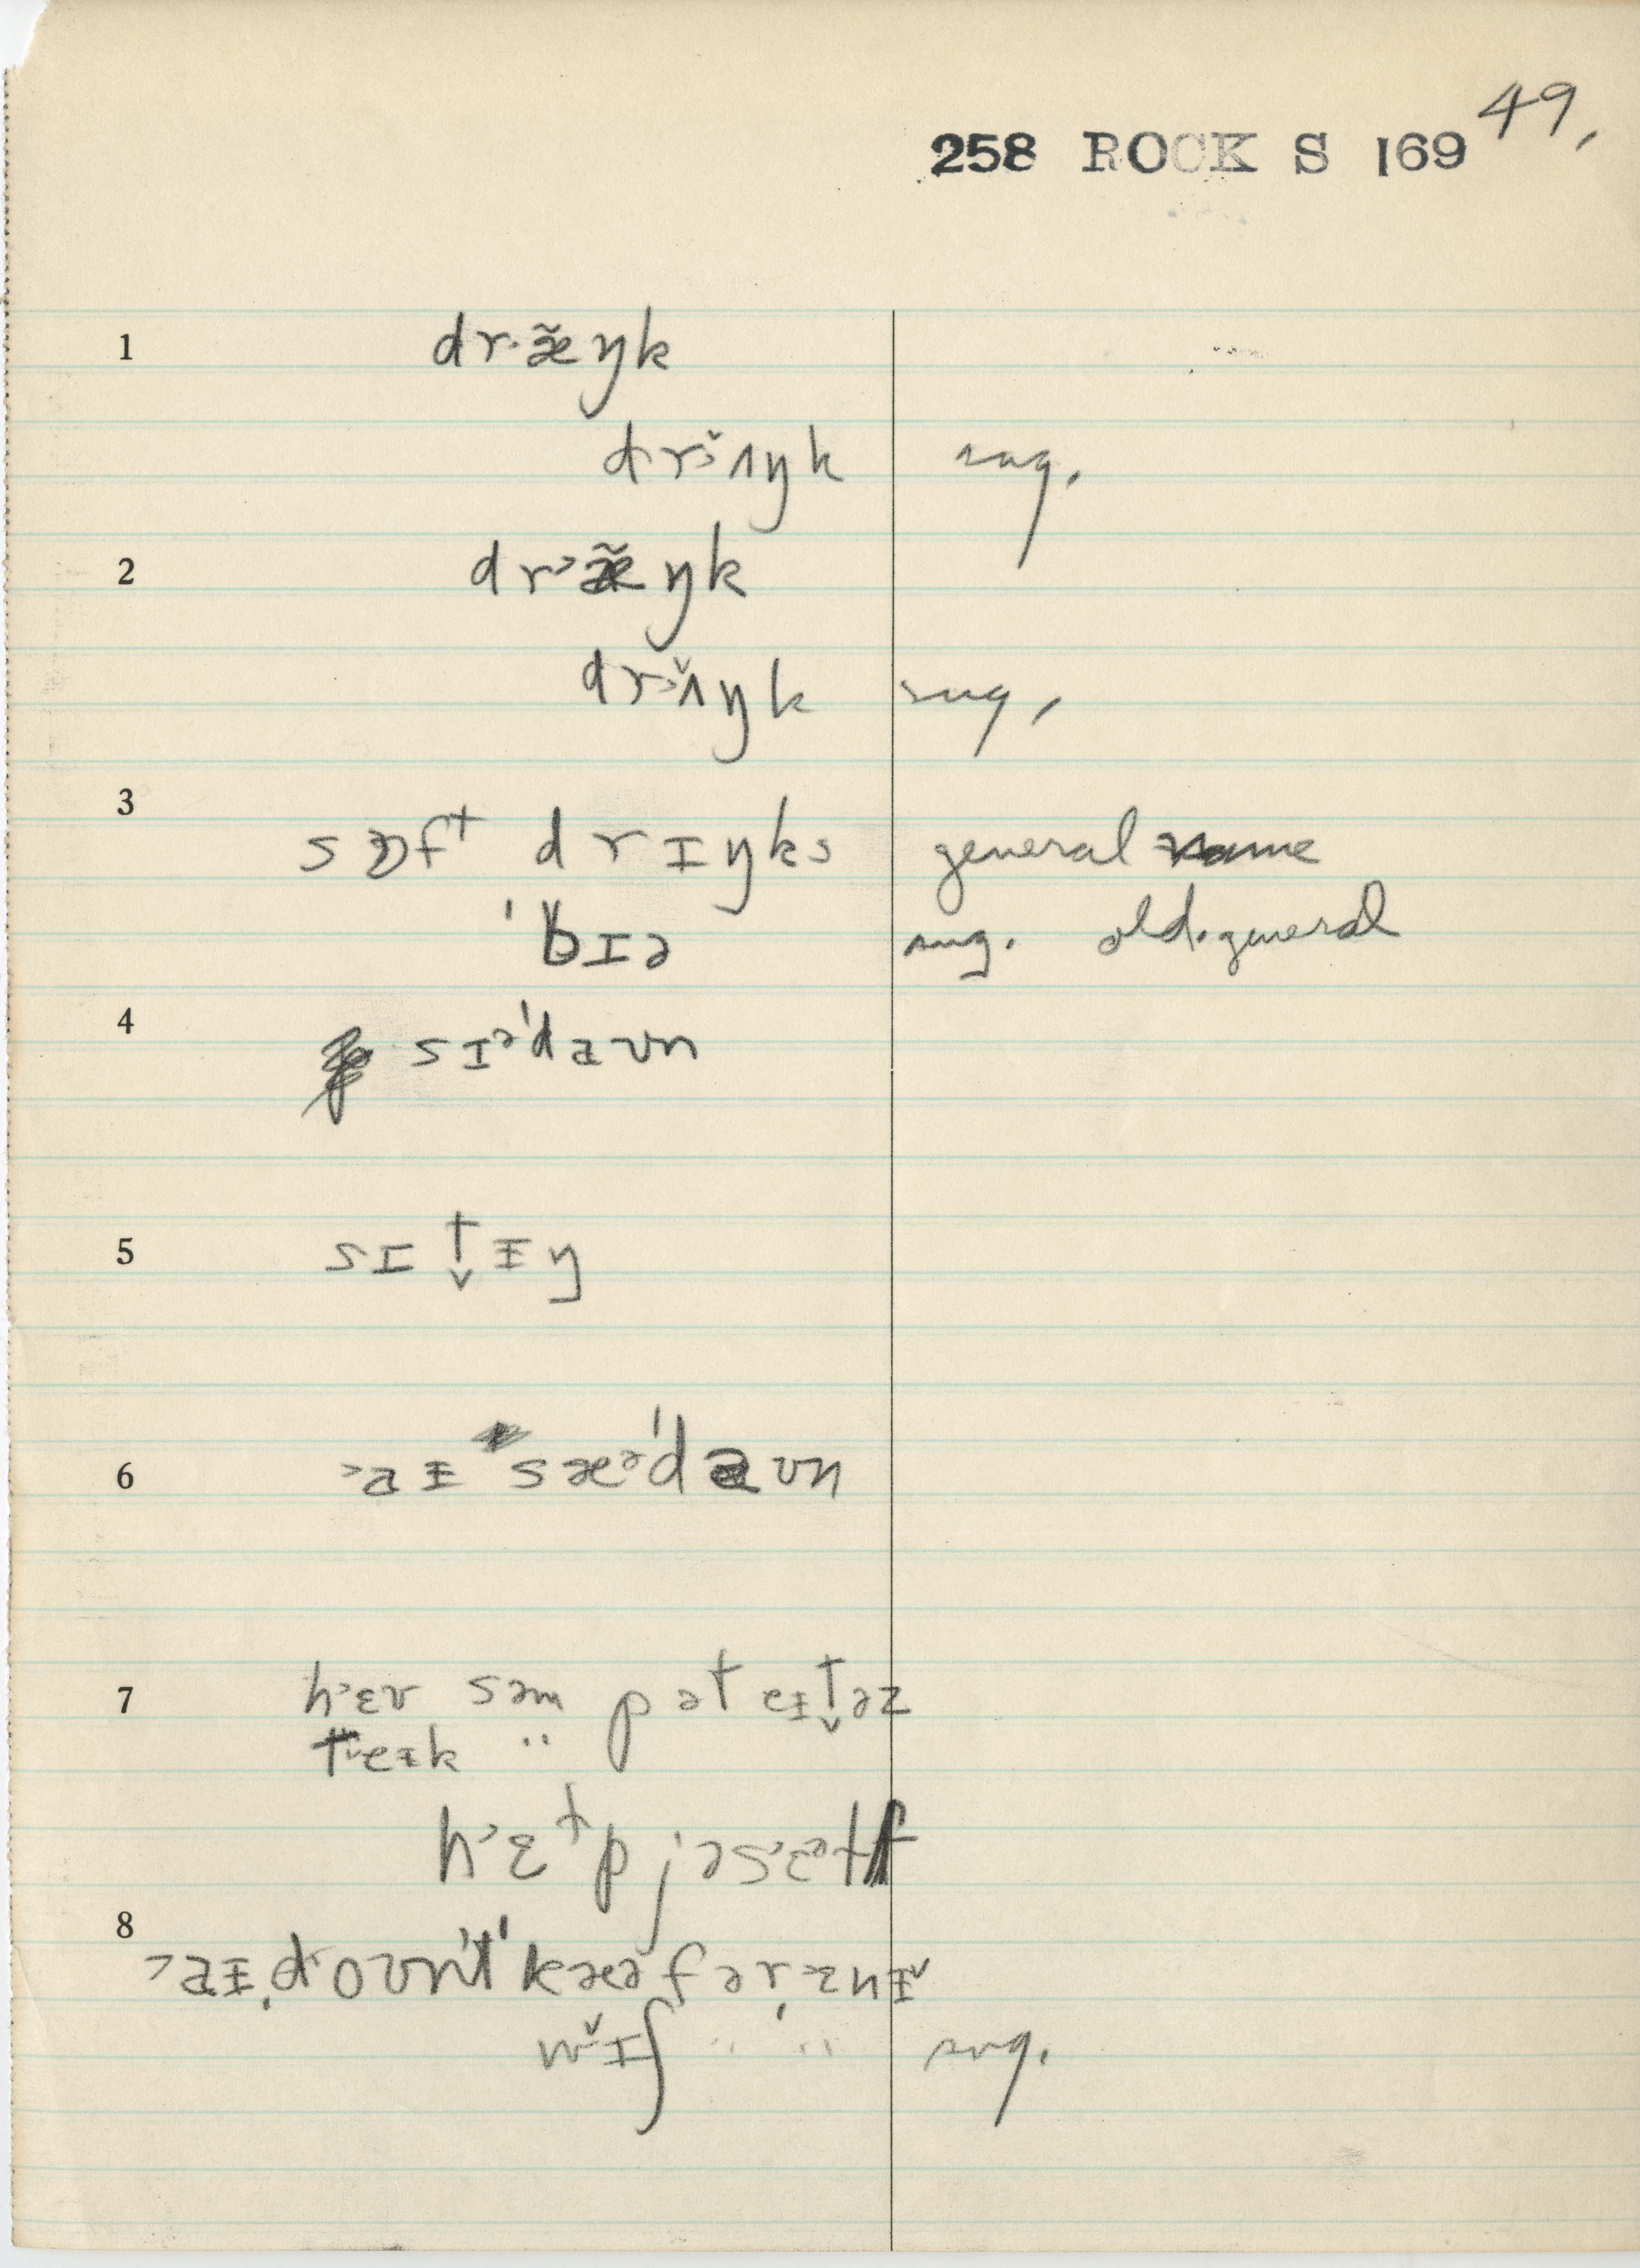 49,
258 ROCK S 169
1 dr·æ̃ŋk
dr˃̌ʌŋk sug.
2 dr˃æ̃ŋk
dr˃ʌ̌ŋk sug,
3 sɒft drɪŋks general name
ˈbɪə sug. old·general
4 sɪəˈdaʊn
5 sɪt̬ᵻŋ
6 ˃aᵻ sæəˈdaʊn
7 h˃ɛv səm pəteᵻt̬əz
t˅eᵻk ''
h˃ɛtp jəs˃ɛətf
8 ˃aᵻ.doʊntˈkæəfər˃ɛnᵻ˅
w˅ɪʃ '' '' sug.